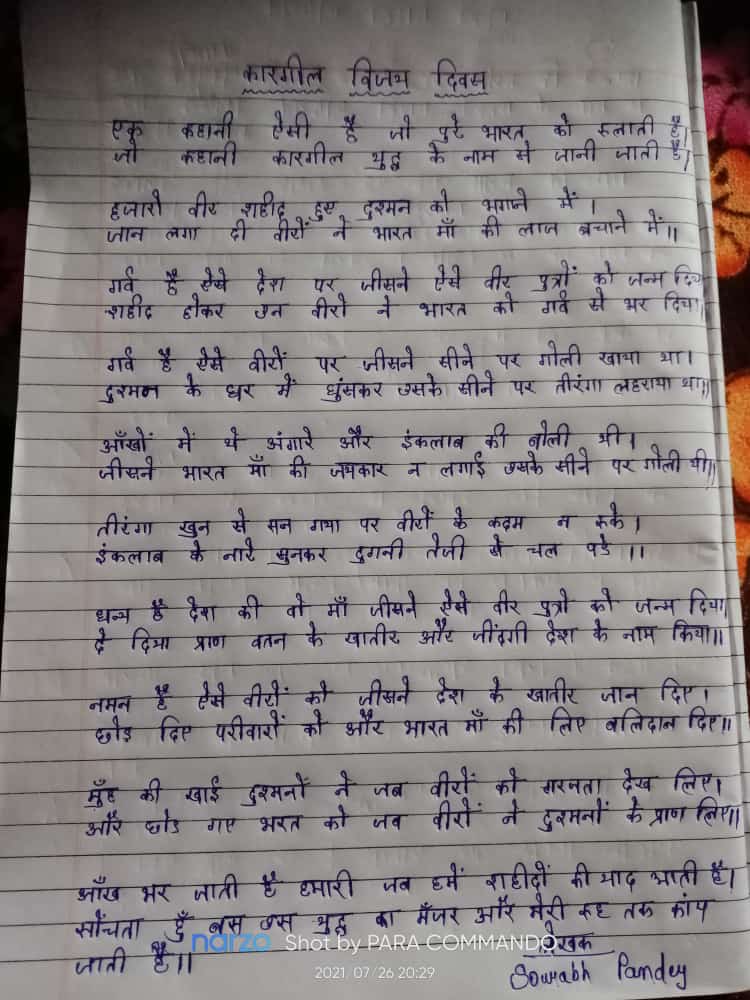 कारगील विजय दिवस
एक कहानी ऐसी है जो पुरे भारत को रुलाती है।
जो कहानी कारगील युद्ध के नाम से जानी जाती है।
हजारो वीर शहीद हुए दुश्मन को भगाने में।
जान लगा दी वीरों ने भारत माँ की लाज बचाने में॥
गर्व है ऐसे देश पर जीसने ऐसे वीर पुत्रों को जन्म दिया
शहीद होकर उन वीरो ने भारत को गर्व से भर दिया॥
गर्व है ऐसे वीरों पर जीसने सीने पर गोली खाया था।
दुश्मन के घर में घुंसकर उसके सीने पर तीरंगा लहराया था॥
आँखों में थे अंगारे और इंकलाब की बोली थी।
जीसने भारत माँ की जयकार न लगाई उसके सीने पर गोली थी॥
तीरंगा खुन से सन गया पर वीरों के कदम न रुके।
इंकलाब के नारे सुनकर दुगनी तेजी से चल पडे॥
धन्य है देश की वो माँ जीसने ऐसे वीर पुत्रो को जन्म दिया।
दे दिया प्राण वतन के खातीर और जींदगी देश के नाम किया॥
नमन है ऐसे वीरों को जीसने देश के खातीर जान दिए।
छोड दिए परीवारों को और भारत माँ की लिए बलिदान दिए॥
मुँह की खाई दुश्मनों ने जब वीरों को गरजता देख लिए।
और छोड गए भरत को जब वीरों ने दुश्मनों के प्राण लिए॥
आँख भर जाती है हमारी जब हमें शहीदों की याद आती है।
सोंचता हुँ बस उस युद्ध का मँजर और मेरी रुह तक कांप
जाती है॥
लेखक
Sourabh Pandey
narzo Shot by PARA COMMANDO
2021/07/26 20:29